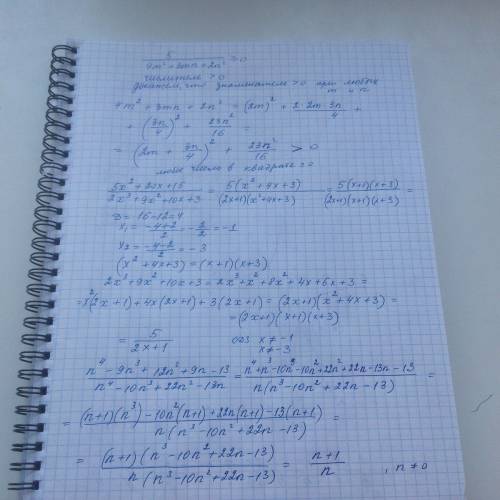 5
4m² + 3mn + 2n² > 0
числитель > 0
докажем, что знаменатель > 0 при любых
m и n
4m² + 3mn + 2n² = (2m)² + 2·2m·3n/4 +
+ (3n/4)² + 23n²/16 =
= (2m + 3n/4)² + 23n²/16 > 0
любое число в квадрате ≥ 0
(5x² + 20x + 15)/(2x³ + 9x² + 10x + 3) = 5(x² + 4x + 3)/((2x+1)(x²+4x+3)) = 5(x+1)(x+3)/((2x+1)(x+1)(x+3)) =
D = 16 - 12 = 4
x₁ = (-4+2)/2 = -2/2 = -1
x₂ = (-4-2)/2 = -3
(x² + 4x + 3) = (x+1)(x+3)
2x³ + 9x² + 10x + 3 = 2x³ + x² + 8x² + 4x + 6x + 3 =
= x²(2x+1) + 4x(2x+1) + 3(2x+1) = (2x+1)(x² + 4x + 3) =
= (2x+1)(x+1)(x+3)
= 5/(2x+1) ОДЗ x ≠ -1
x ≠ -3
(n⁴ - 9n³ + 12n² + 9n - 13)/(n⁴ - 10n³ + 22n² - 13n) = (n⁴ + n³ - 10n³ - 10n² + 22n² + 22n - 13n - 13)/(n(n³ - 10n² + 22n - 13)) =
= ((n+1)(n³) - 10n²(n+1) + 22n(n+1) - 13(n+1))/(n(n³ - 10n² + 22n - 13)) =
= ((n+1)(n³ - 10n² + 22n - 13))/(n(n³ - 10n² + 22n - 13)) = (n+1)/n , n ≠ 0